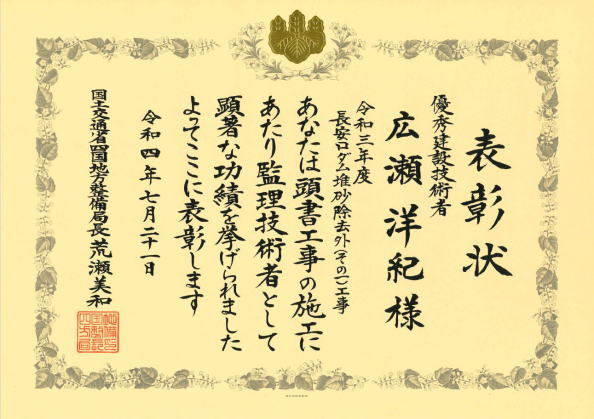 表彰状
優秀建設技術者
広瀬洋紀様
令和三年度
長安口ダム堆砂除去外(その一)工事
あなたは頭書工事の施工に
あたり監理技術者として
顕著な功績を挙げられました
よってここに表彰します
令和四年七月二十一日
国土交通省四国地方整備局長荒瀬美和